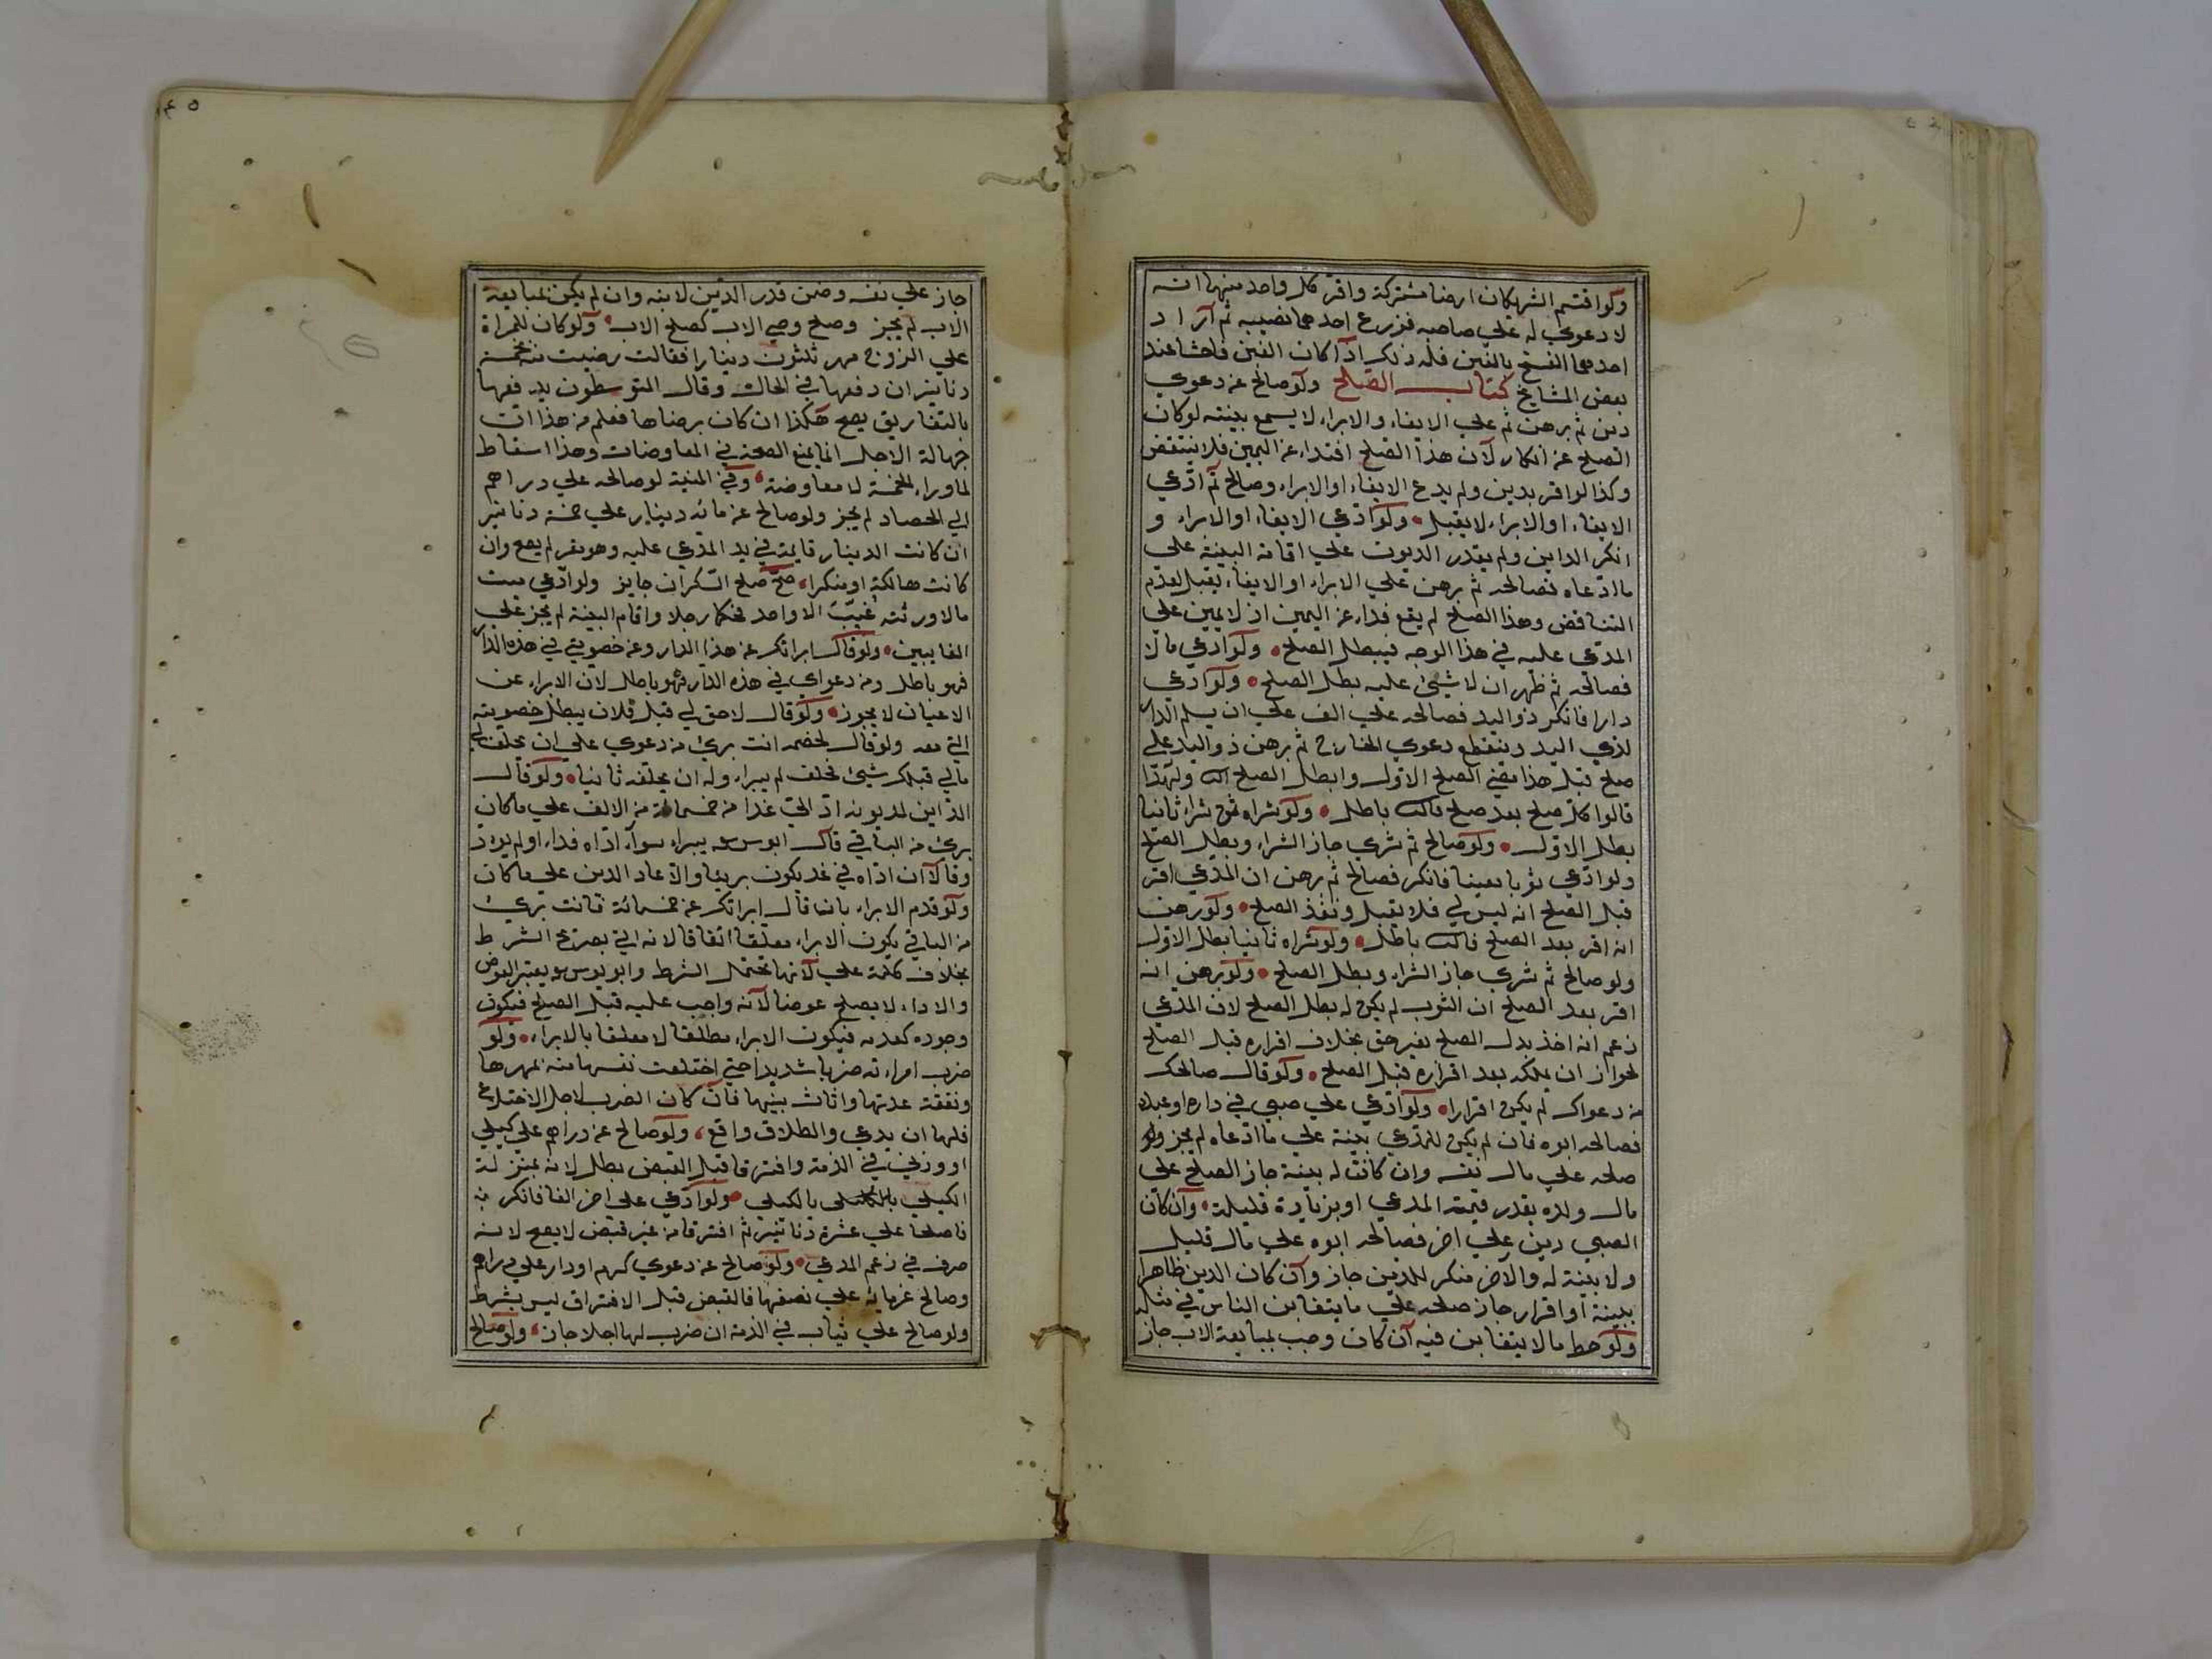 ولو اقتسم الشريكان ارضا مشتركة واقر كل واحد منهما انه
لا دعوي له علي صاحبه فزرع احدهما نصيبه ثم اراد
احدهما الفسخ بالغبن فله ذلك اذا كان الغبن فاحشا عند
بعض المشايخ كتاب الصلح ولو صالح عن دعوي
دين ثم برهن ثم علي الايفاء والابراء لا يسمع بينته لو كان
الصلح عن انكار لان هذا الصلح افتداء عن اليمين فلا ينتقض
وكذا لو اقر بدين ولم يدع الايفاء او الابراء وصالح ثم ادعي
الايفاء او الابراء لا يقبل ولو ادعي الايفاء او الابراء و
انكر الداين ولم يقدر المديون علي اقامة البينة علي
ما ادعاه فصالحه ثم برهن علي الابراء او الايفاء يقبل لعدم
التناقض وهذا الصلح لم يقع فداء عن اليمين اذ لا يمين علي
المدعي عليه في هذا الوجه فيبطل الصلح ولو ادعي مالا
فصالحه ثم ظهر ان لا شيئ عليه بطل الصلح ولو ادعي
دارا فانكر ذو اليد فصالحه علي الف علي ان يسلم الدار
لذي اليد وينقطع دعوي الخارج ثم برهن ذو اليد علي
صلح قبل هذا يقضي الصلح الاول وابطل الصلح ولهذا
قالوا كل صلح بعد صلح باطل ولو شراه ثم شراه ثانيا
بطل الاول ولو صالح ثم شري جاز الشراء وبطل الصلح
ولو ادعي ثوبا بعينا فانكر فصالح ثم برهن ان المدعي اقر
قبل الصلح انه ليس لي فلا يقبل ونفذ الصلح ولو برهن
انه اقر بعد الصلح باطل ولو شراه ثانيا بطل الاول
ولو صالح ثم شري جاز الشراء وبطل الصلح ولو برهن انه
اقر بعد الصلح ان الثوب لم يكن له بطل الصلح لان المدعي
زعم انه اخذ بدل الصلح بغير حق بخلاف اقراره قبل الصلح
لجواز ان يملكه بعد اقراره قبل الصلح ولو قال صالحك
من دعواك لم يكن اقرارا ولو ادعي علي صبي في داره او عبده
فصالحه ابوه فان لم يكن للمدعي بينة علي ما ادعاه لم يجز ولو
صلحه علي مال نفسه وان كانت له بينة جاز الصلح علي
مال ولده بقدر قيمة المدعي او بزيادة قليلة وان كان
الصبي دين علي اخر فصالحه ابوه علي مال قليل
ولا بينة له والآخر منكر للدين جاز وان كان الدين ظاهرا
ببينة او اقرار جاز صلحه علي ما يتغابن الناس في مثله
ولو حط ما لا يتغابن فيه ان كان وجب بمبايعة الاب جاز
٤٥
جاز علي نفسه وضمن قدر الدين لابنه وان لم يكن بمبايعة
الاب لم يجز وصلح وصي الاب كصلح الاب ولو كان للمراة
علي الزوج مهر ثلثون دينارا فقالت رضيت منه بخمسة
دنانير ان دفعها في الحال وقال المتوسطون يدفعها
بالتفاريق يصح هكذا ان كان برضاها فعلم من هذا ان
جهالة الاجل انما يمنع الصحة في المعاوضات وهذا اسقاط
لما وراء الخمسة لا معاوضة وفي المنية لو صالحه علي دراهم
الي الحصاد لم يجز ولو صالح عن مائة دينار علي خمسة دنانير
ان كانت الدينار قايمة في يد المدعي عليه وهو مقر لم يصح وان
كانت هالكة او منكرا صح صلح السكران جايز ولو ادعي ميت
مالا ورثته غيب الا واحد فحكما رجلا واقام البينة لم يجز علي
الغايبين ولو قال ابراتك عن هذا الدار وعن خصومتي في هذه الدار
فهو باطل ومن دعواي في هذه الدار فهو باطل لان الابراء عن
الاعيان لا يجوز ولو قال لا حق لي قبل فلان يبطل خصومته
التي معه ولو قال لخصمه انت برئ من دعوي علي ان يحلف لي
مالي قبلك شيئ فحلف لم يبراء وله ان يحلفه ثانيا ولو قال
الداين لمديونه اد الي غدا من خمسمائة من الالف علي ما كان
برئ من الباقي قال ابو يوسف يبراء سواء اداه فداء او لم يود
وقالا ان اداه في غد يكون بريئا والا عاد الدين علي ما كان
ولو قدم الابراء بان قال ابراتك عن خمسمائة فانت برئ
من الباقي يكون الابراء معلقا اتفاقا لانه اتي بصريح الشرط
بخلاف كلمة علي لانها تحتمل الشرط وابو يوسف يعتبر العوض
والاداء لا يصلح عوضا لانه واجب عليه قبل الصلح فيكون
وجوده كعدمه فيكون الابراء مطلقا لا معلقا بالابراء ولو
ضرب امراته ضربا شديدا حتي اختلعت نفسها منه بمهرها
ونفقة عدتها واثاث بيتها فان كان الضرب لاجل الاختلاع
فلها ان يدعي والطلاق واقع ولو صالح عن دراهم علي كيلي
او وزني في الذمة وافترقا قبل القبض بطل لانه بمنزلة
الكيلي بالكيلي ولو ادعي علي اخر الفا فانكر ثم
فاصلحا علي عشرة دنانير ثم افترقا من غير قبض لا يصح لانه
صرف في زعم المدعي ولو صالح عن دعوي كرم او دار علي دراهم
وصالح غرمائه علي نصفها فالقبض قبل الافتراق ليس بشرط
ولو صالح علي ثياب في الذمة ان ضرب لها اجلا جاز ولو صالح